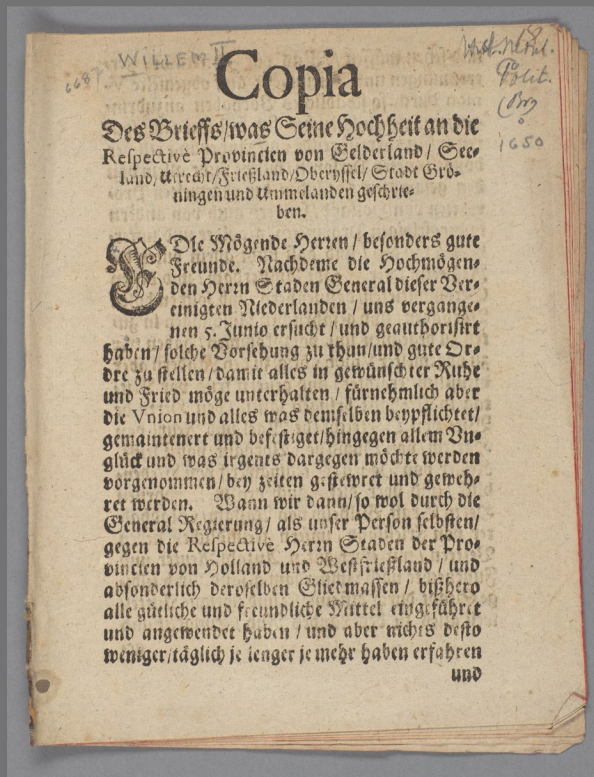 668
WILLEM II
Polit.
1650
Copia
Des Brieffs/was Seine Hochheit an die
Respectivè Provincien von Gelderland / See-
land/ Utrecht/Frießland/Oberyssel/ Stadt Grö-
ningen und Ummelanden geschrie-
ben.
EDle Mögende Herren / besonders gute
Freunde. Nachdeme die Hochmögen-
den Herrn Staden General dieser Ver-
einigten Niederlanden / uns vergange-
nen 5. Junio ersucht / und geauthorisirt
haben / solche Vorsehung zu thun/und gute Or-
dre zu stellen / damit alles in gewünschter Ruhe
und Fried möge unterhalten / fürnehmlich aber
die Vnion und alles was demselben beypflichtet/
gemaintenert und befestiget/hingegen allem Vn-
glück und was irgents dargegen möchte werden
vorgenommen / bey zeiten gestewret und geweh-
ret werden. Wann wir dann/ so wol durch die
General Regierung / als unser Person selbsten/
gegen die Respectivè Herrn Staden der Pro-
vincien von Holland und Westfrießland / und
absonderlich deroselben Gliedmassen / bißhero
alle gütliche und freundliche Mittel eingeführet
und angewendet haben / und aber nichts desto
weniger/täglich je lenger je mehr haben erfahren
und